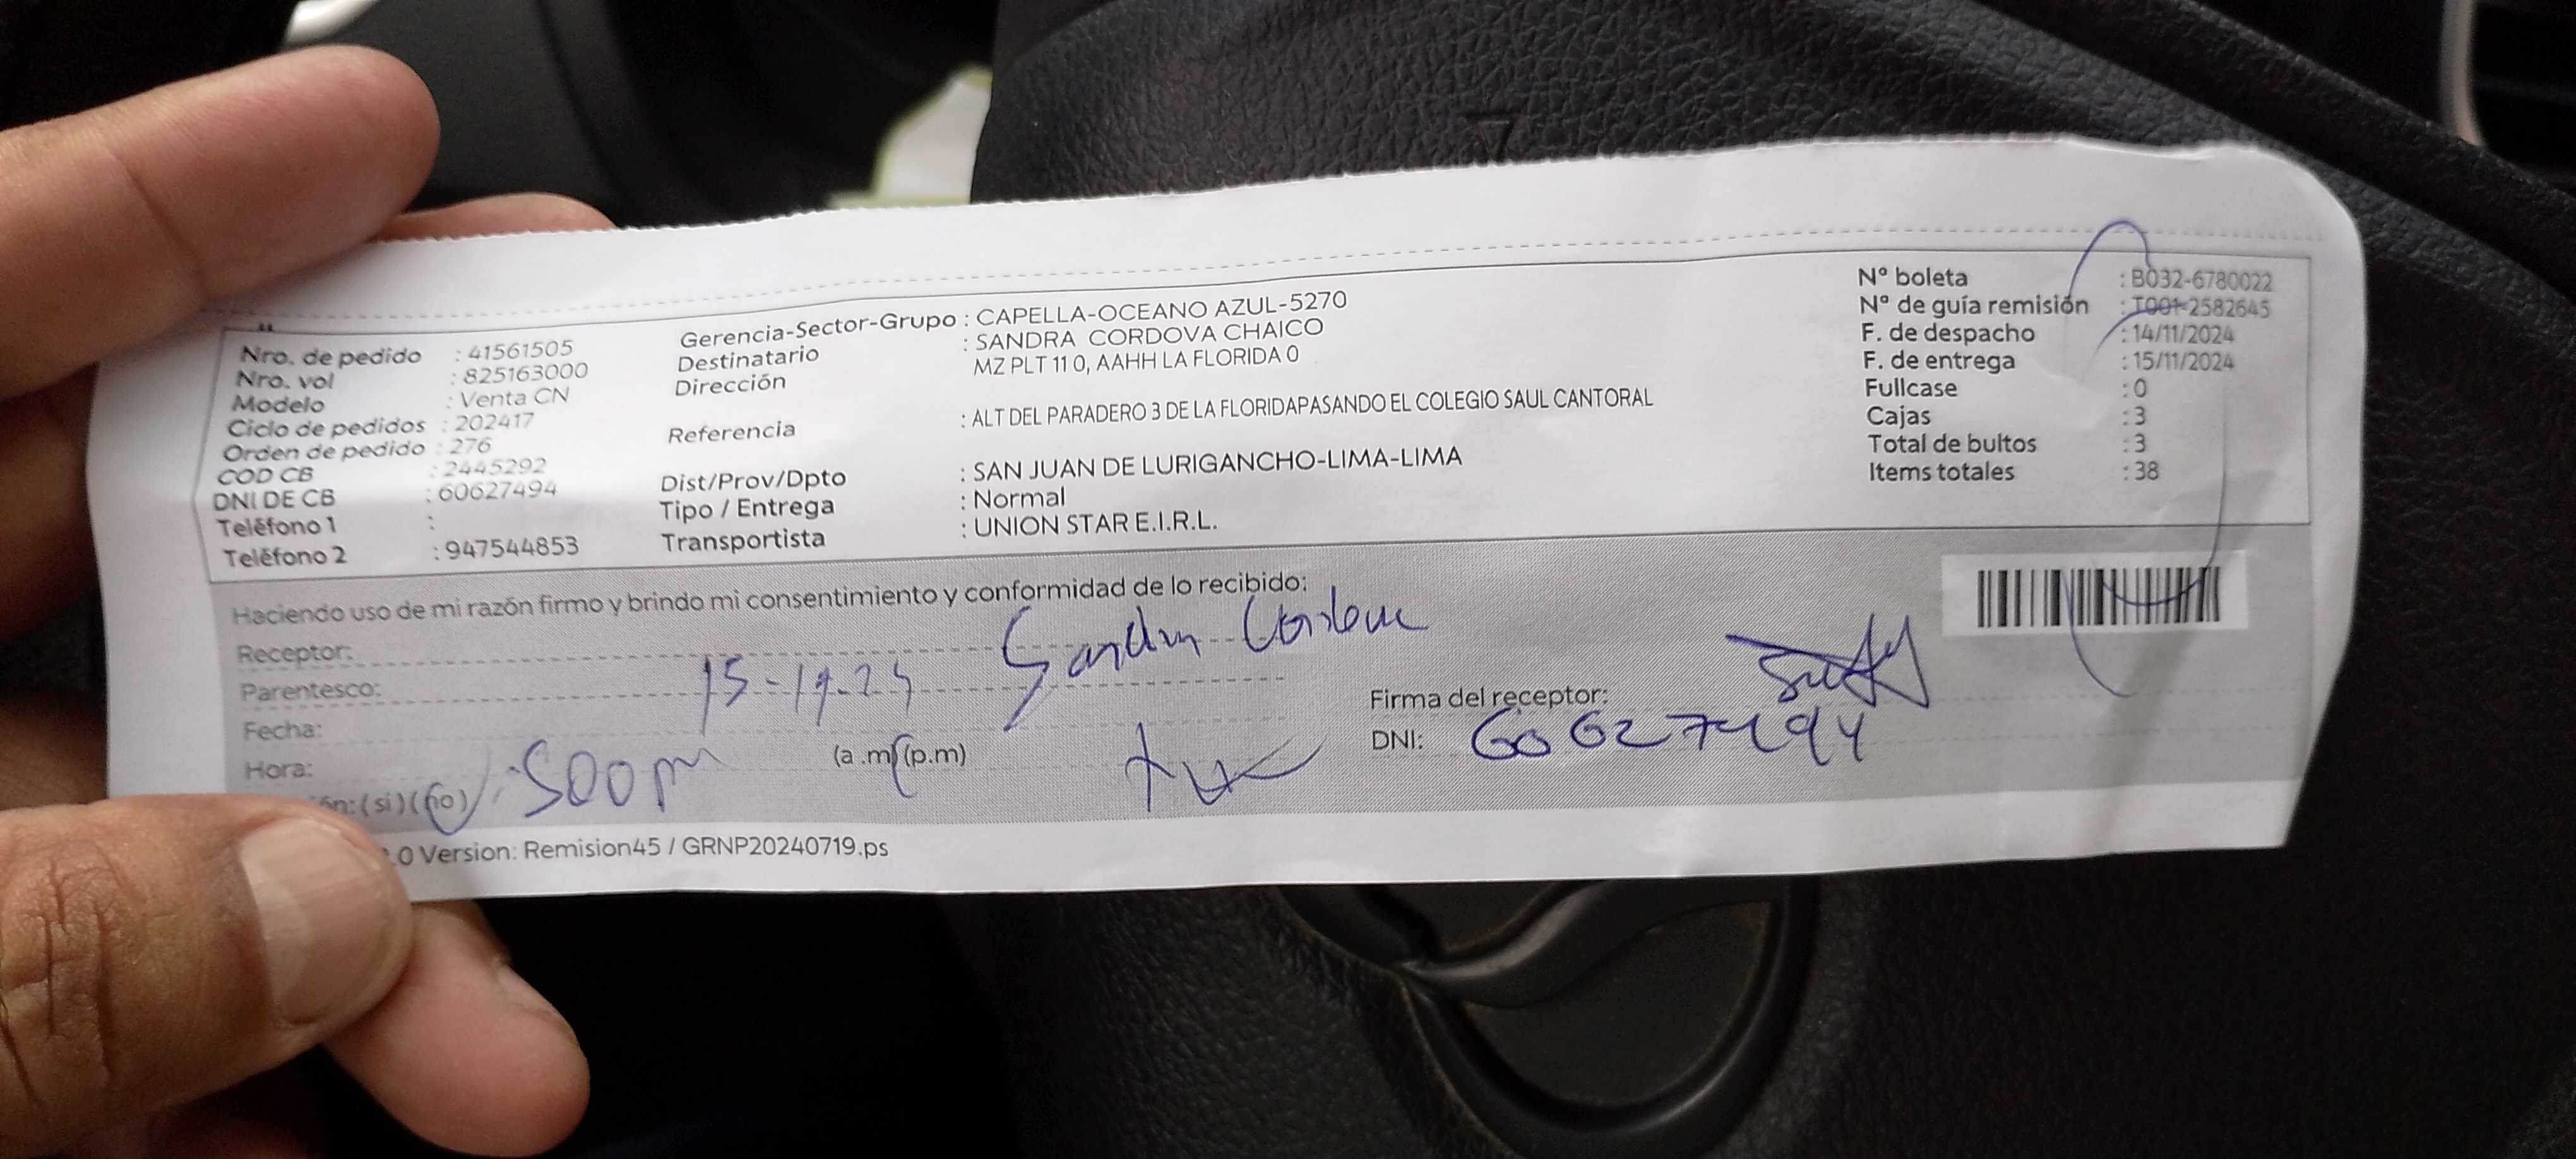 Nro. de pedido : 41561505
Nro. vol : 825163000
Modelo : Venta CN
Ciclo de pedidos : 202417
Orden de pedido : 276
COD CB : 2445292
DNI DE CB : 60627494
Teléfono 1 :
Teléfono 2 : 947544853
Gerencia-Sector-Grupo : CAPELLA-OCEANO AZUL-5270
Destinatario : SANDRA CORDOVA CHAICO
Dirección MZ PLT 11 0, AAHH LA FLORIDA 0
Referencia : ALT DEL PARADERO 3 DE LA FLORIDAPASANDO EL COLEGIO SAUL CANTORAL
Dist/Prov/Dpto : SAN JUAN DE LURIGANCHO-LIMA-LIMA
Tipo / Entrega : Normal
Transportista : UNION STAR E.I.R.L.
N° boleta : B032-6780022
N° de guía remisión : T001-2582645
F. de despacho : 14/11/2024
F. de entrega : 15/11/2024
Fullcase : 0
Cajas : 3
Total de bultos : 3
Items totales : 38
Haciendo uso de mi razón firmo y brindo mi consentimiento y conformidad de lo recibido:
Receptor: Sandra
Parentesco:
Fecha: 15-11-24
Hora: 500pm (a.m) (p.m)
ón: (si) (no)
Firma del receptor:
DNI: 60627494
.0 Version: Remision45 / GRNP20240719.ps